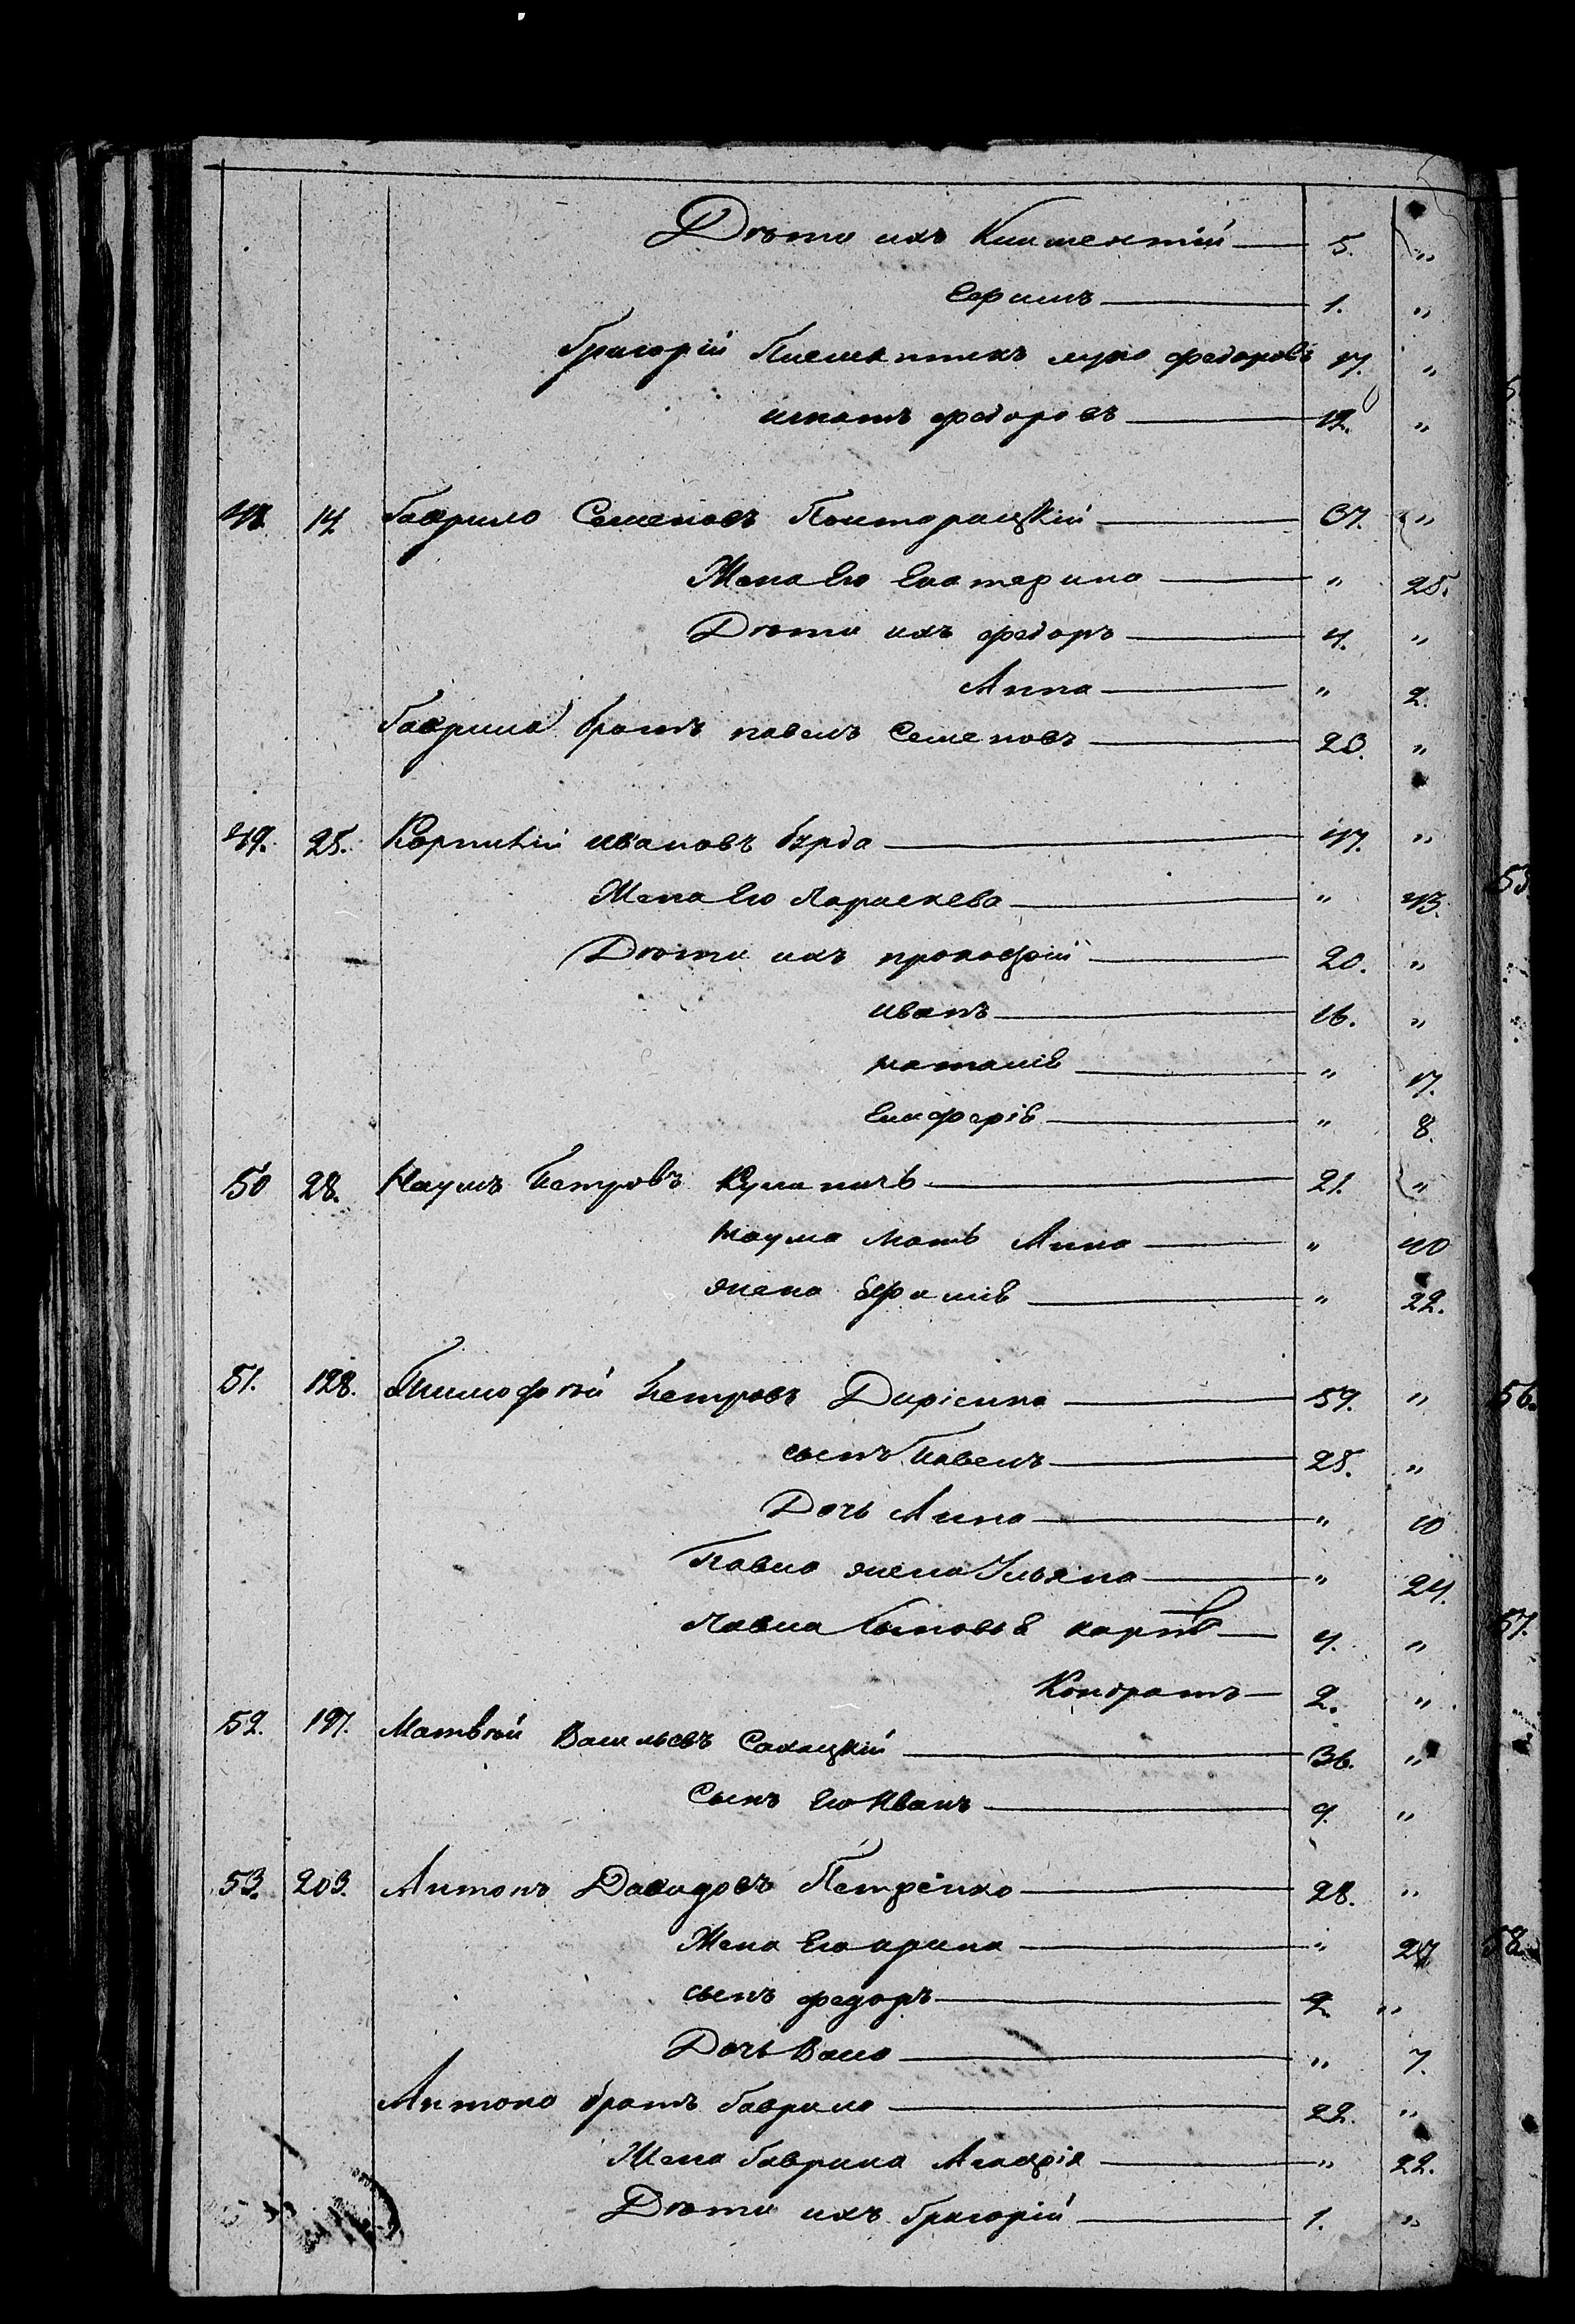 Дѣти ихъ Климентій — 5. "
Ефимъ — 1. "
Григорій Племянникъ Федоровъ 17. "
игнатъ федоровъ — 12. "
48. 14 Гаврило Семеновъ Полторацкій — 37. "
Жена Его Екатерина — " 25.
Дѣти ихъ федоръ — 4. "
Анна — " 2.
Гаврила братъ павелъ Семеновъ — 23. "
49. 25. Корнилій ивановъ бурда — 47. "
Жена Его Параскева — " 43.
Дѣти ихъ прокофій — 20. "
иванъ — 16. "
наталія — " 17.
Гликерія — " 8.
50 28. Наумъ Петровъ — 21. "
наума мать Анна — " 40
жена Ефимія — " 22.
51. 128. Тимофѣй Петровъ Диріенко — 59. "
сынъ Павелъ — 25. "
Дочь Анна — " 10
Павла жена Ульяна — " 24.
Павла Сыновья карпъ — 4. "
Кондратъ — 2. "
52. 197. Матвѣй Васильевъ Салацкій — 36. "
Сынъ Его Иванъ — 9. "
53. 203. Антонъ Давидовъ Петренко — 28. "
Жена Его арина — " 27
сынъ федоръ — 2 "
Дочь Васа — " 7.
Антона братъ Гаврило — 22. "
Жена Гаврила Агафія — " 22.
Дѣти ихъ Григорій — 1. "
53
56.
57.
58